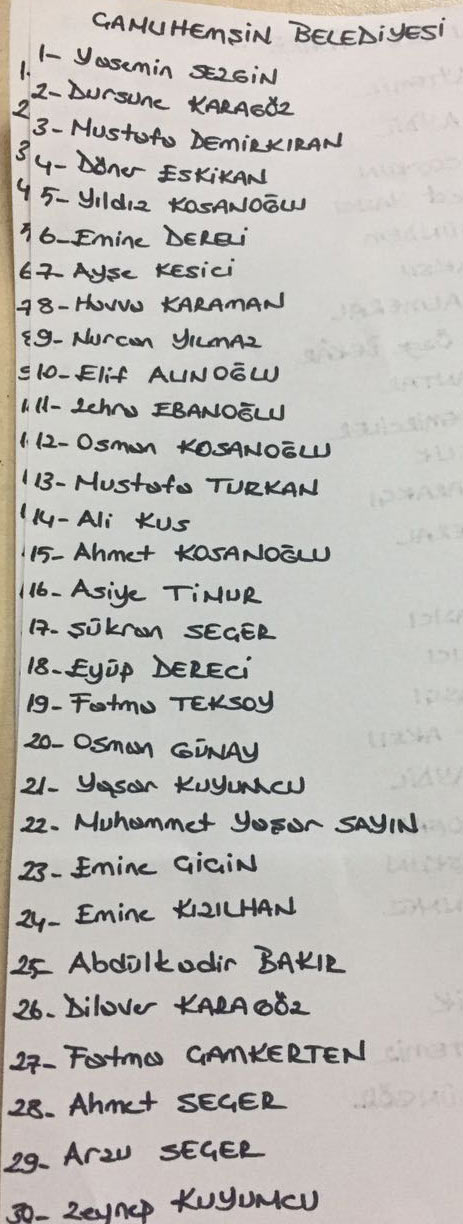 ÇAMLIHEMŞİN BELEDİYESİ
1- Yasemin SEZGİN
2- Dursune KARAGÖZ
3- Mustafa DEMİRKIRAN
4- Döner ESKİKAN
5- Yıldız KOSANOĞLU
6- Emine DERELİ
7- Ayşe KESİCİ
8- Havva KARAMAN
9- Nurcan YILMAZ
10- Elif ALİNOĞLU
11- Zehra EBANOĞLU
12- Osman KOSANOĞLU
13- Mustafa TURKAN
14- Ali KUS
15- Ahmet KOSANOĞLU
16- Asiye TİMUR
17- Şükran SEÇER
18- Eyüp DERECİ
19- Fatma TEKSOY
20- Osman GÜNAY
21- Yaşar KUYUMCU
22- Muhammet Yaşar SAYIN
23- Emine GİGİN
24- Emine KIZILHAN
25- Abdülkadir BAKIR
26- Dilaver KARAGÖZ
27- Fatma ÇAMKERTEN
28- Ahmet SEÇER
29- Arzu SEÇER
30- Zeynep KUYUMCU